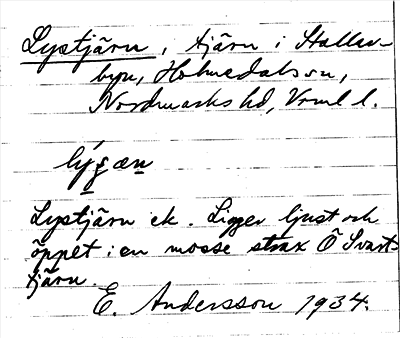 Lystjärn, tjärn i Hallev-
byn, Holmedals sn,
Nordmarks hd, Vrml l.
lýgæn
Lystjärn ek. Ligger ljust och
öppet i en mosse strax Ö Svart-
tjärn.
E. Andersson 1934.